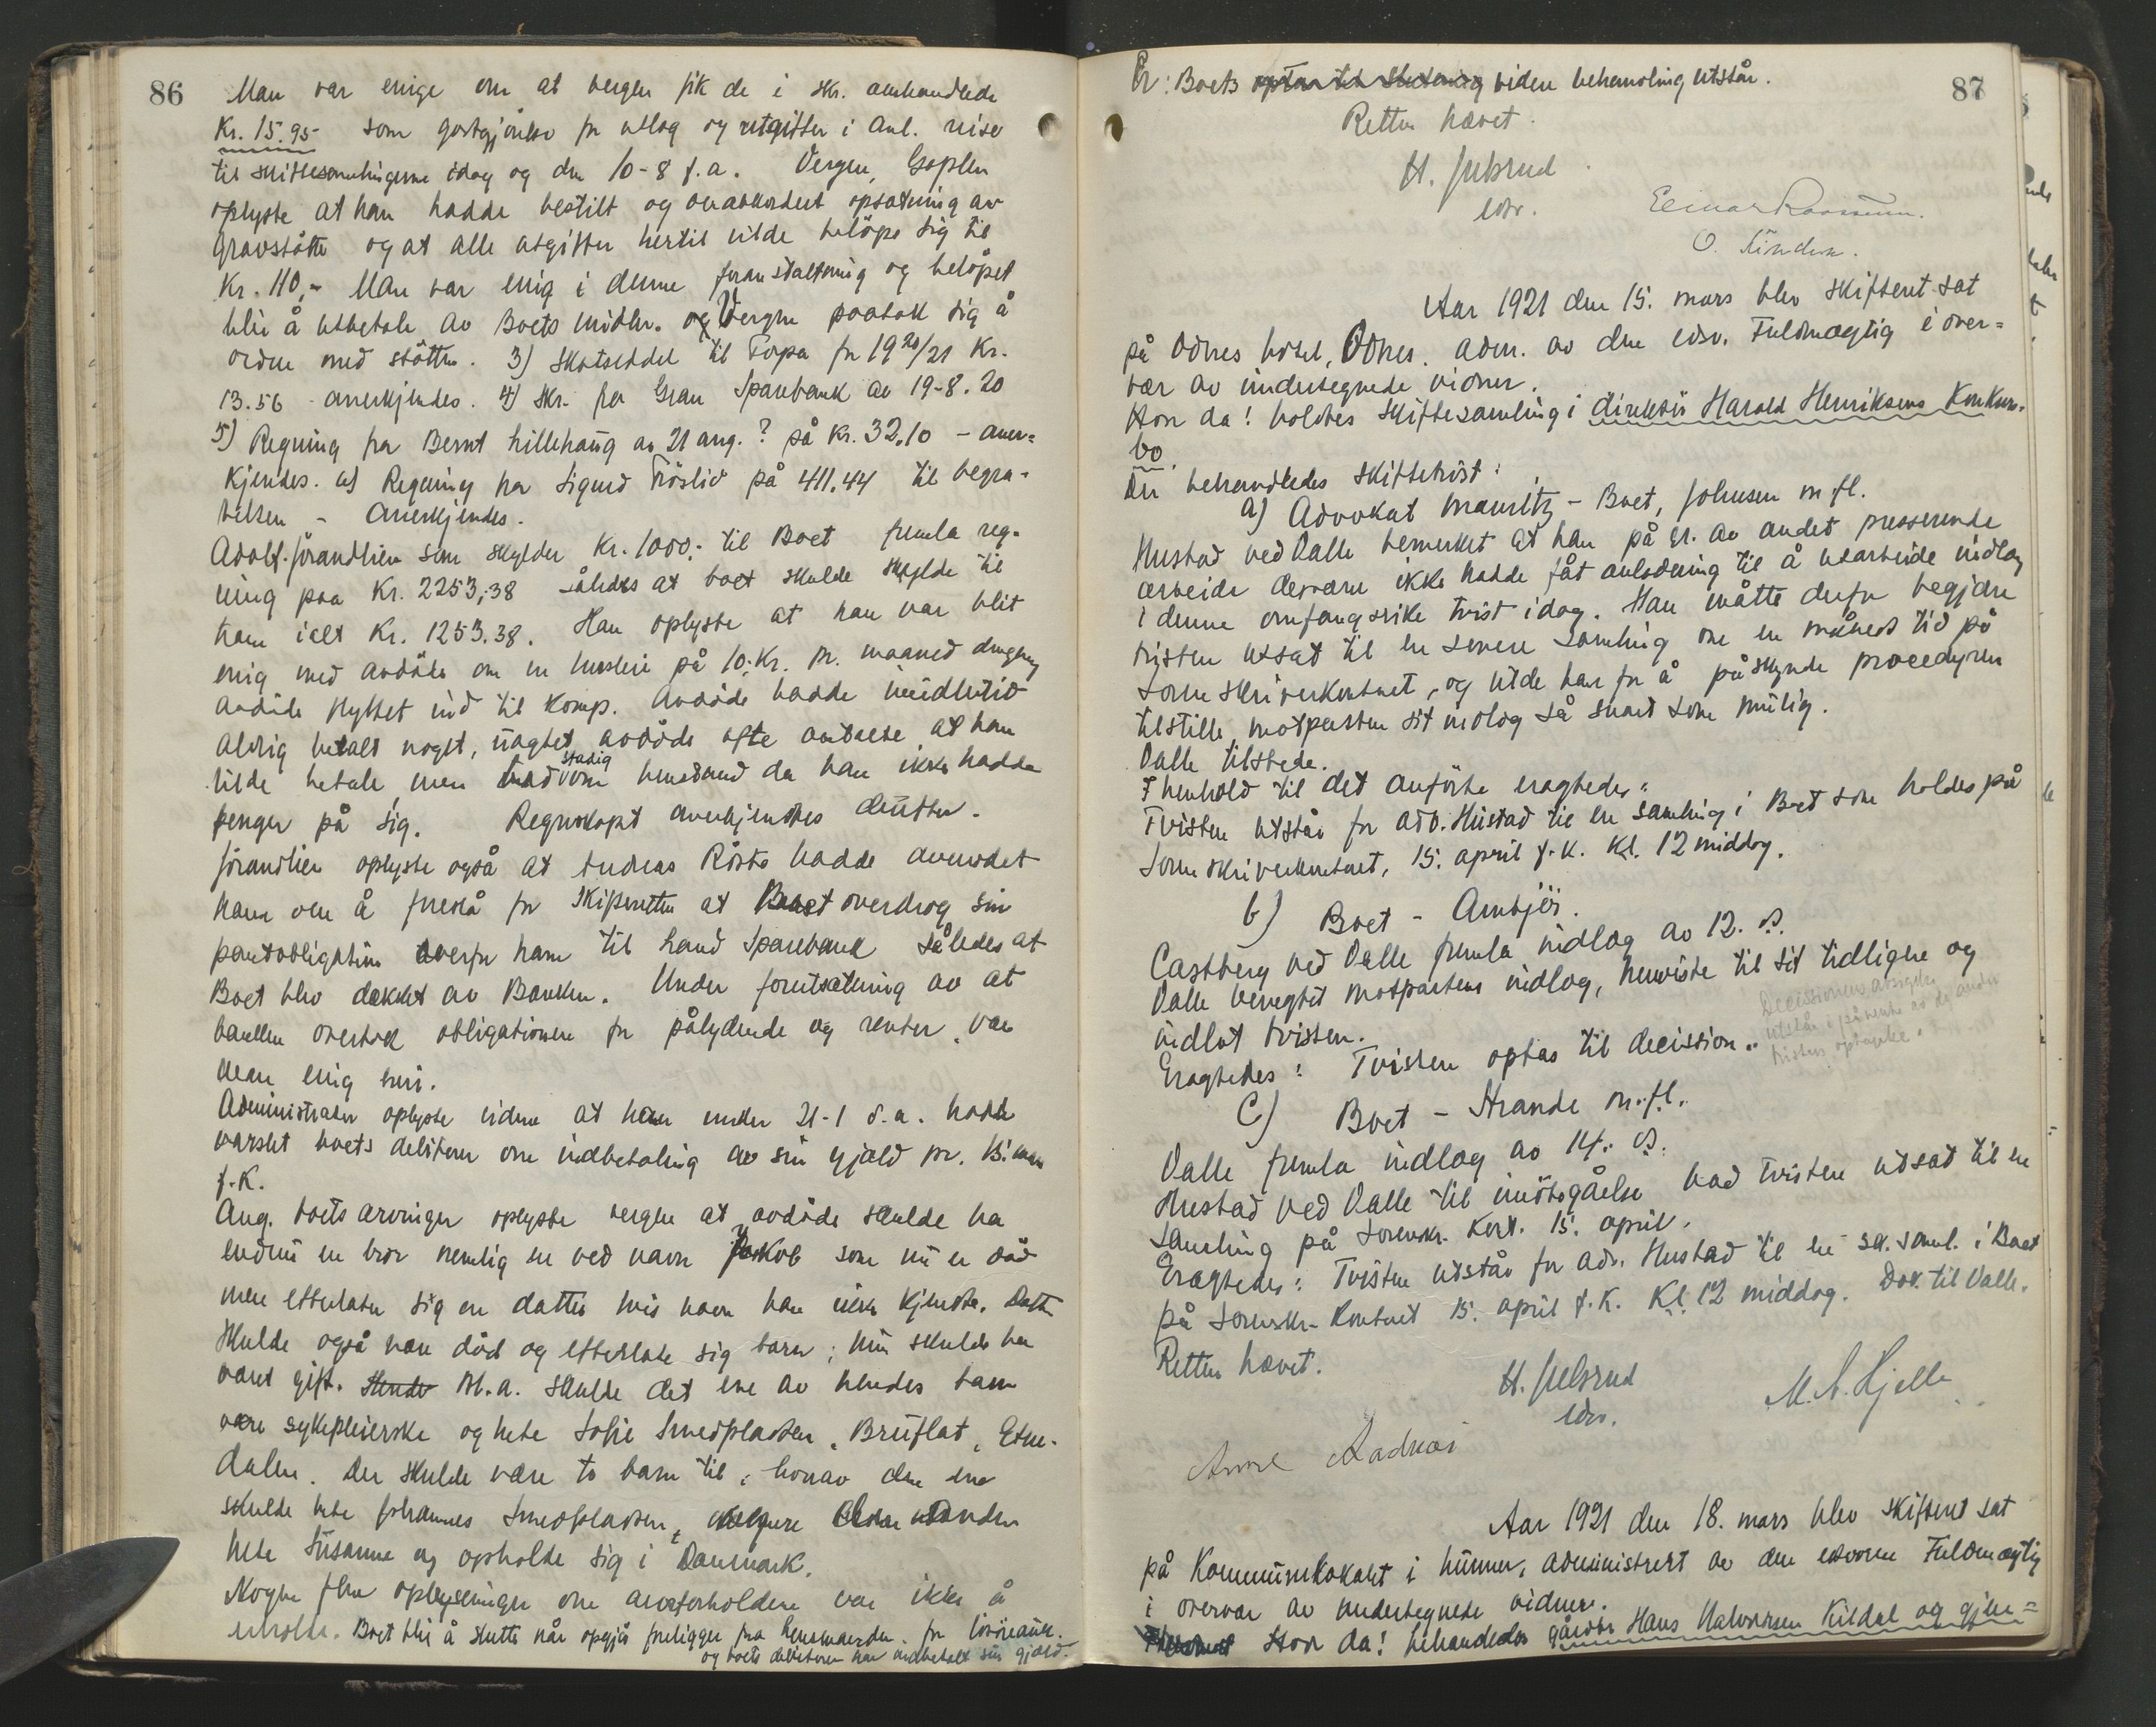 86
Man var enige om at vergen fik de i skr. omhandlede
Kr. 15.95 som godtgjørelse for utlæg og utgifter i anl. reise
til skiftesamlingerne idag og den 10-8 f.a. Vergen, Goplen
oplyste at han hadde bestilt og overakkordert opsætning av
gravstøtte og at alle utgifter hertil vilde beløpe sig til
Kr. 110,- Man var enig i denne foranstaltning og beløpet
blir å utbetale av Boets midler. og Vergen paatok sig å
ordne med støtten. 3) Skatseddel til Torpa for 1920/21 Kr.
13.56 anerkjendes. 4) Skr. fra Gran Sparebank av 19-8.20
5) Regning fra Bernt Lillehaug av 21 aug. ? på Kr. 32,10 - aner-
kjendes. 6) Regning fra Sigurd Frøslid på 411,44 til begra-
velsen - Anerkjendes.
Adolf Jørandlien som skylder Kr. 1000,- til Boet fremla reg-
ning paa Kr. 2253,38 således at boet skulde skylde til
ham ialt Kr. 1253.38. Han oplyste at han var blit
enig med avdøde om en husleie på 10,- Kr. pr. maaned dengang
avdøde flyttet ind til komp. Avdøde hadde imidlertid
aldrig betalt noget, uagtet avdøde ofte omtalte at han
vilde betale, men bad stadig om henstand da han ikke hadde
penger på sig. Regnskapet anerkjendtes derefter.
Jørandlien oplyste også at Andreas Røste hadde anmodet
ham om å foreslå for Skifteretten at Boet overdrog sin
pantobligation overfor ham til Land Sparebank således at
Boet blev dækket av Banken. Under forutsætning av at
banken overtok obligationen for pålydende og renter, var
man enig heri.
Administrator oplyste videre at han under 21-1 d.a. hadde
varslet boets debitorer om indbetaling av sin gjæld pr. 15. mars
f.k.
Ang. boets arvinger oplyste vergen at avdøde skulde ha
endnu en bror nemlig en ved navn Jakob som nu er død
men efterlater sig en datter hvis navn han ikke kjendte. Datter
skulde også være død og efterlate sig barn; hun skulde ha
været gift. Bl.a. skulde det ene av hendes barn
være sykepleierske og hete Sofie Smedplassen, Bruflat, Etne-
dalen. Der skulde være to barn til, hvorav den ene
skulde hete Johannes Smedplassen, den anden
hete Susanne og opholde sig i Danmark.
Nogen flere oplysninger om arveforholdene var ikke å
erholde. Boet blir å slutte når opgjør foreligger fra lensmanden for løsøreauk.
og boets debitorer har indbetalt sin gjæld.
87
Er: Boets optas til slutning videre behandling utstår.
Retten hævet.
H. Julsrud
edsv.
Einar Rasmussen.
O. Linden.
Aar 1921 den 15. mars blev skifteret sat
på Odnes hotel, Odnes. adm. av den edsv. Fuldmægtig i over-
vær av undertegnede vidner.
Hvor da! holdtes skiftesamling i direktør Harald Henriksens Konkurs-
bo.
Der behandledes skiftetvist:
a) Advokat Mauritz - Boet, Johnsen m.fl.
Hustad ved Valle bemerket at han på gr. av andet presserende
arbeide desværre ikke hadde fåt anledning til å utarbeide indlæg
i denne omfangsrike tvist idag. Han måtte derfor begjære
tvisten utsat til en senere samling om en måneds tid på
sorenskriverkontoret, og vilde han for å påskynde proceduren
tilstille motparten sit indlæg så snart som mulig.
Valle tilstede.
I henhold til det anførte eragtedes:
Tvisten utstår for adv. Hustad til en samling i Boet som holdes på
sorenskriverkontoret, 15. april f.k. Kl. 12 middag.
b) Boet - Ambjør.
Castberg ved Valle fremla indlæg av 12. ds.
Valle benegtet motpartens indlæg, henviste til sit tidligere og
indlot tvisten.
Eragtedes: Tvisten optas til decission.
Decissionens avsigelse
utstår i påvente av de andre
tvisters optagelse.
c) Boet - Strande m.fl.
Valle fremla indlæg av 14. ds.
Hustad ved Valle til imøtegåelse bad tvisten utsat til en
samling på Sorenskr. Kont. 15. april.
Eragtedes: Tvisten utstår for adv. Hustad til en sk. saml. i Boet
på Sorenskr.-Kontoret 15. april f.k. Kl. 12 middag. Dok. til Valle.
Retten hævet.
H. Julsrud
edsv.
M. A. Hjelle
Arne Aadnæs
Aar 1921 den 18. mars blev skifteret sat
på Kommunelokalet i Lunner, administrert av den edsvorne Fuldmægtig
i overvær av undertegnede vidner.
Hvor da! behandledes gårdbr. Hans Halvorsen Kildal og gjen-